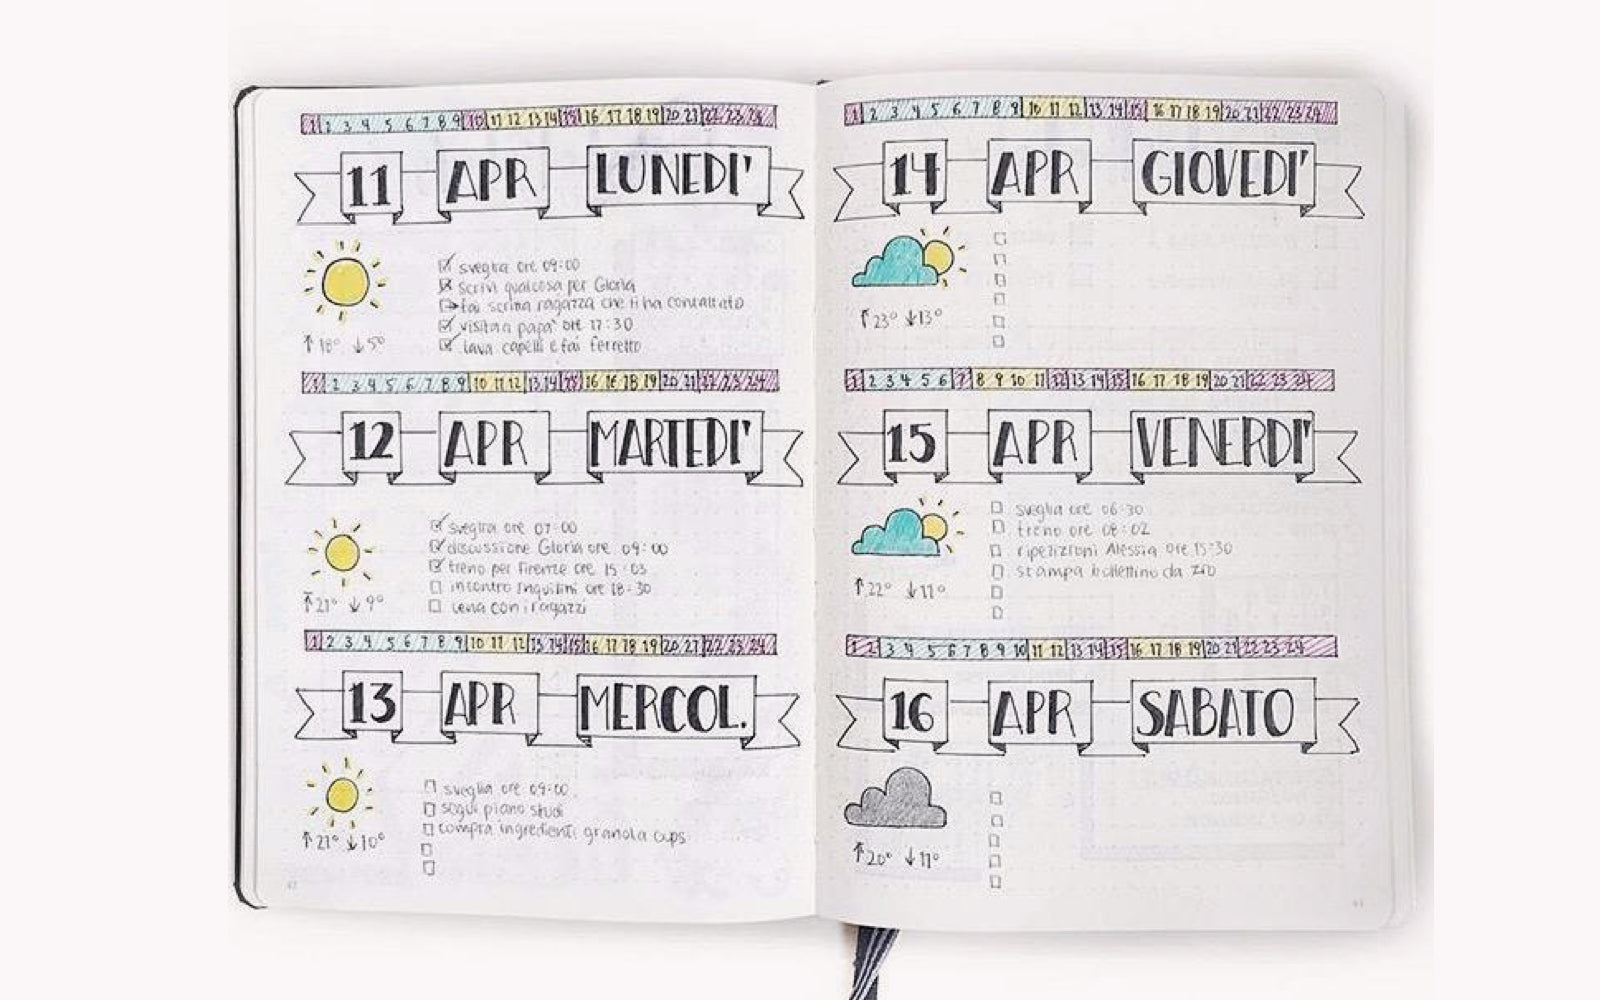 1 2 3 4 5 6 7 8 9 10 11 12 13 14 15 16 17 18 19 20 21 22 23 24
11 APR LUNEDI'
sveglia ore 09:00
scrivi qualcosa per Gloria
fai scrina ragazza che ti ha contattato
visita a papa' ore 17:30
lava capelli e fai ferretto
↑ 18° ↓ 5°
1 2 3 4 5 6 7 8 9 10 11 12 13 14 15 16 17 18 19 20 21 22 23 24
12 APR MARTEDI'
sveglia ore 07:00
discussione Gloria ore 09:00
treno per Firenze ore 15:03
incontro inquilini ore 18:30
cena con i ragazzi
↑ 21° ↓ 9°
1 2 3 4 5 6 7 8 9 10 11 12 13 14 15 16 17 18 19 20 21 22 23 24
13 APR MERCOL.
sveglia ore 09:00
segui piano studi
compra ingredienti granola cups
↑ 21° ↓ 10°
1 2 3 4 5 6 7 8 9 10 11 12 13 14 15 16 17 18 19 20 21 22 23 24
14 APR GIOVEDI'
↑ 23° ↓ 13°
1 2 3 4 5 6 7 8 9 10 11 12 13 14 15 16 17 18 19 20 21 22 23 24
15 APR VENERDI'
sveglia ore 06:30
treno ore 08:02
ripetizioni Alessia ore 15:30
stampa bollettino da zio
↑ 22° ↓ 11°
1 2 3 4 5 6 7 8 9 10 11 12 13 14 15 16 17 18 19 20 21 22 23 24
16 APR SABATO
↑ 20° ↓ 11°